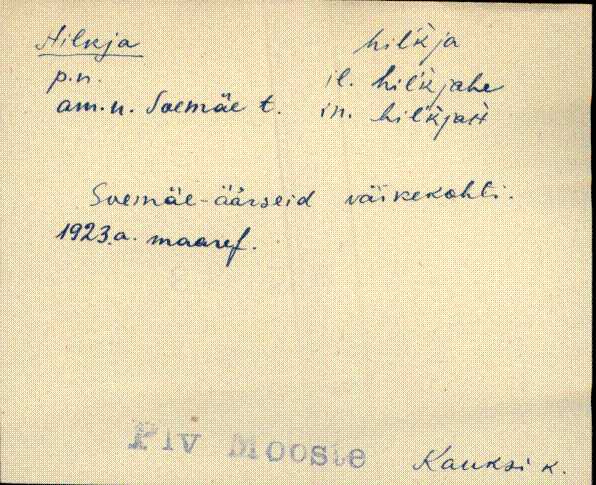 Hilkja hiľkja
p.n. il. hiľkjahe
am.n. Soemäe t. in. hiľkjaH
Soemäe-äärseid väikekohti.
1923.a. maaref.
Plv Mooste
Kauksi k.